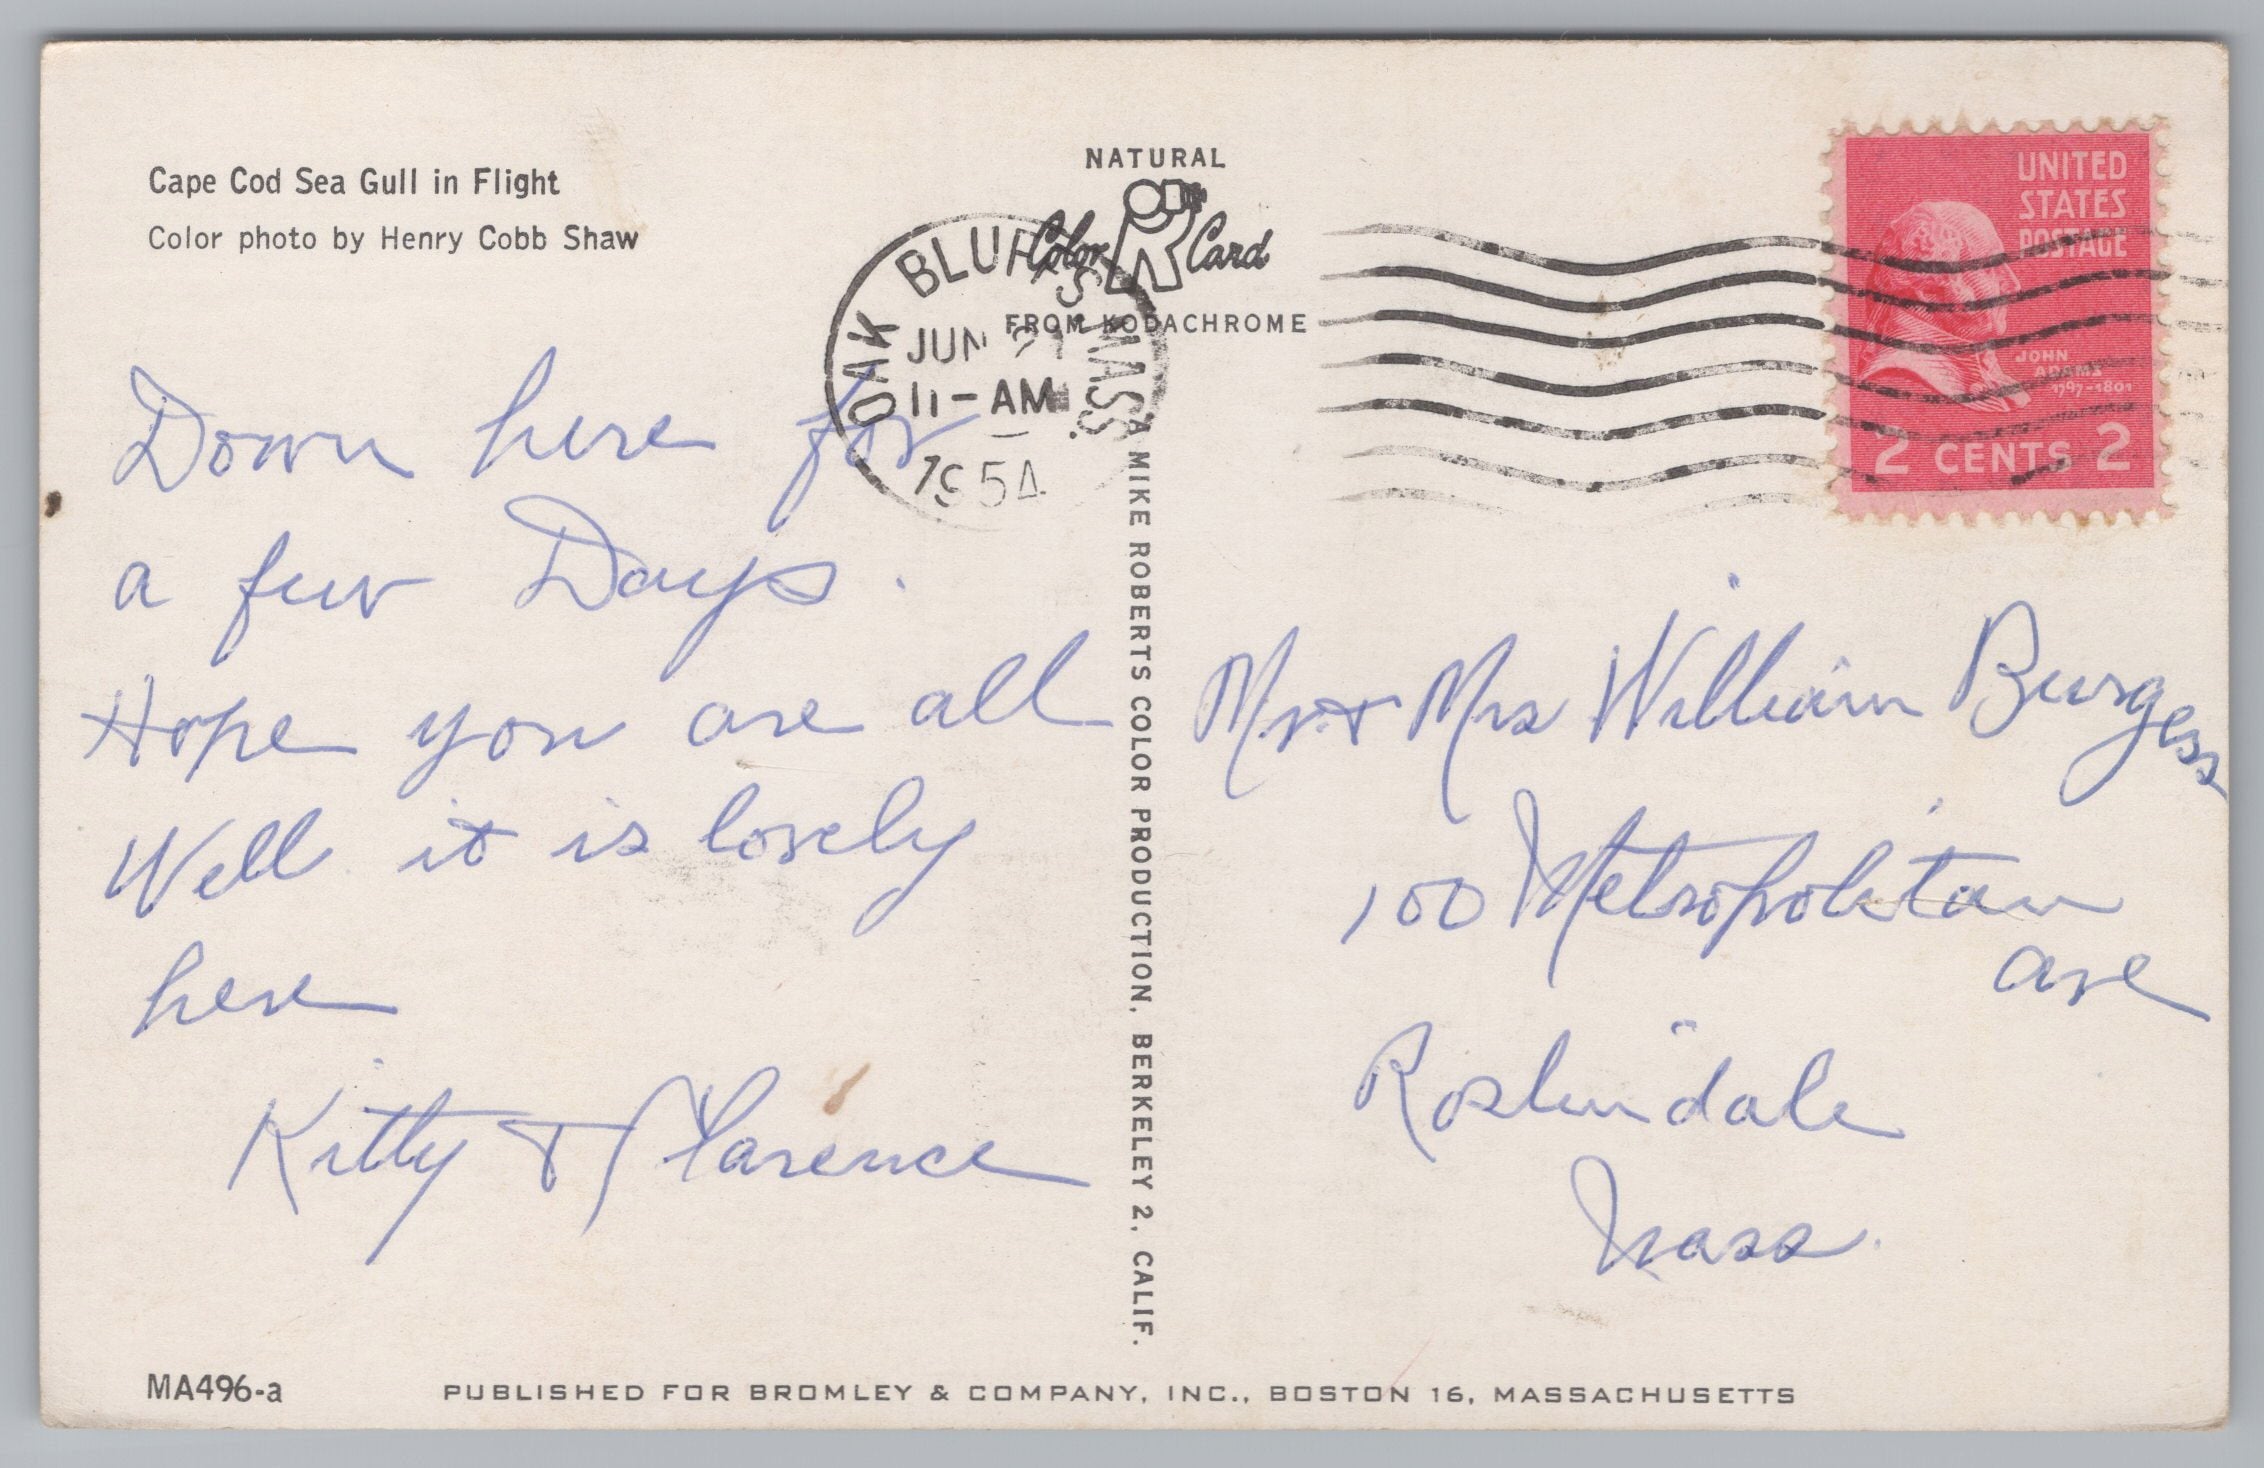 Cape Cod Sea Gull in Flight
Color photo by Henry Cobb Shaw
NATURAL
Color Card
FROM KODACHROME
OAK BLUFFS MASS.
JUN 21
11-AM
1954
UNITED
STATES
POSTAGE
JOHN
ADAMS
1797-1801
2 CENTS 2
Down here for
a few Days.
Hope you are all
Well it is lovely
here
Kitty + Clarence
A MIKE ROBERTS COLOR PRODUCTION, BERKELEY 2, CALIF.
Mr + Mrs William Burgess
100 Metropolitan
ave
Roslindale
Mass.
MA496-a
PUBLISHED FOR BROMLEY & COMPANY, INC., BOSTON 16, MASSACHUSETTS